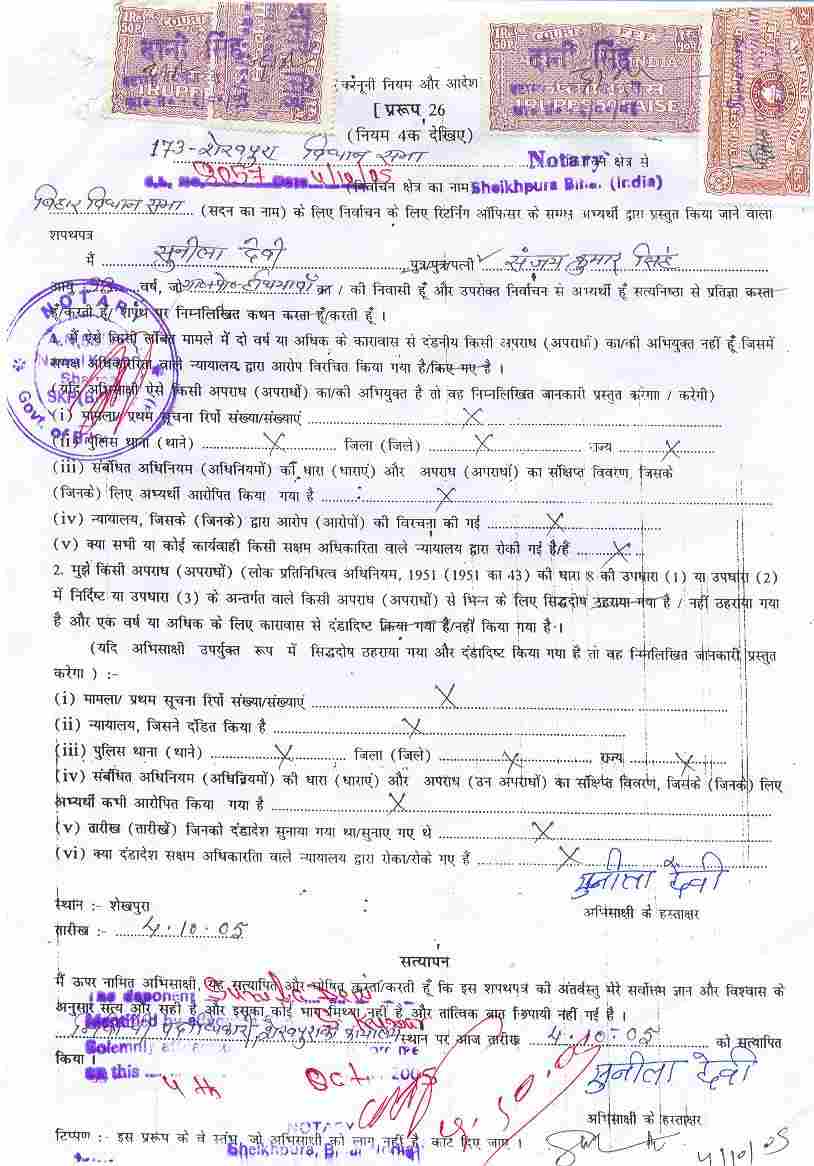 COURT FEE
दानी सिंह
RUPEE
COURT FEE
INDIA
दानी सिंह
RUPEES PAISE
WELFARE STAMP
कानूनी नियम और आदेश
[ प्ररूप 26
(नियम 4क देखिए)
173-शेखपुरा विधान सभा Notary क्षेत्र से
S.L. No. Date 4/10/05 (निर्वाचन क्षेत्र का नाम Sheikhpura Bihar (India)
बिहार विधान सभा (सदन का नाम) के लिए निर्वाचन के लिए रिटर्निंग ऑफिसर के समक्ष अभ्यर्थी द्वारा प्रस्तुत किया जाने वाला
शपथपत्र
मैं सुनीला देवी पुत्र/पुत्र/पत्नी संजय कुमार सिंह
आयु वर्ष, जो का / की निवासी हूँ और उपरोक्त निर्वाचन से अभ्यर्थी हूँ सत्यनिष्ठा से प्रतिज्ञा करता
हूँ/करती हूँ/ शपथ पर निम्नलिखित कथन करता हूँ/करती हूँ ।
NOTARY
Govt. of B
1. मैं ऐसे किसी लंबित मामले में दो वर्ष या अधिक के कारावास से दंडनीय किसी अपराध (अपराधों) का/की अभियुक्त नहीं हूँ जिसमें
समक्ष अधिकारिता वाले न्यायालय द्वारा आरोप विरचित किया गया है/किए गए है ।
(यदि अभिसाक्षी ऐसे किसी अपराध (अपराधों) का/की अभियुक्त है तो वह निम्नलिखित जानकारी प्रस्तुत करेगा / करेगी)
(i) मामला/ प्रथम सूचना रिपो संख्या/संख्याएं X
(ii) पुलिस थाना (थाने) X जिला (जिले) X राज्य X
(iii) संबंधित अधिनियम (अधिनियमों) की धारा (धाराएं) और अपराध (अपराधों) का संक्षिप्त विवरण, जिसके
(जिनके) लिए अभ्यर्थी आरोपित किया गया है X
(iv) न्यायालय, जिसके (जिनके) द्वारा आरोप (आरोपों) की विरचना की गई X
(v) क्या सभी या कोई कार्यवाही किसी सक्षम अधिकारिता वाले न्यायालय द्वारा रोकी गई है/हैं X
2. मुझे किसी अपराध (अपराधों) (लोक प्रतिनिधित्व अधिनियम, 1951 (1951 का 43) की धारा 8 की उपधारा (1) या उपधारा (2)
में निर्दिष्ट या उपधारा (3) के अन्तर्गत वाले किसी अपराध (अपराधों) से भिन्न के लिए सिद्धदोष ठहराया गया है / नहीं ठहराया गया
है और एक वर्ष या अधिक के लिए कारावास से दंडादिष्ट किया गया है/नहीं किया गया है ।
(यदि अभिसाक्षी उपर्युक्त रूप में सिद्धदोष ठहराया गया और दंडादिष्ट किया गया है तो वह निम्नलिखित जानकारी प्रस्तुत
करेगा ) :-
(i) मामला/ प्रथम सूचना रिपो संख्या/संख्याएं X
(ii) न्यायालय, जिसने दंडित किया है X
(iii) पुलिस थाना (थाने) X जिला (जिले) X राज्य X
(iv) संबंधित अधिनियम (अधिनियमों) की धारा (धाराएं) और अपराध (उन अपराधों) का संक्षिप्त विवरण, जिसके (जिनके) लिए
अभ्यर्थी कभी आरोपित किया गया है X
(v) तारीख (तारीखें) जिनको दंडादेश सुनाया गया था/सुनाए गए थे X
(vi) क्या दंडादेश सक्षम अधिकारता वाले न्यायालय द्वारा रोका/रोके गए हैं X
सुनीला देवी
स्थान :- शेखपुरा
अभिसाक्षी के हस्ताक्षर
तारीख :- 4.10.05
सत्यापन
मैं ऊपर नामित अभिसाक्षी, यह सत्यापित और घोषित करता/करती हूँ कि इस शपथपत्र की अंतर्वस्तु मेरे सर्वोत्तम ज्ञान और विश्वास के
The deponent
अनुसार सत्य और सही है और इसका कोई भाग मिथ्या नहीं है और तात्विक बात छिपायी नहीं गई है ।
Identified
/स्थान पर आज तारीख 4.10.05 को सत्यापित
Solemnly
किया ।
on this 4th Oct 2005
सुनीला देवी
अभिसाक्षी के हस्ताक्षर
NOTARY
टिप्पण :- इस प्ररूप के वे स्तंभ, जो अभिसाक्षी को लागू नहीं है, काट दिए जाए ।
Sheikhpura, Bihar (India)
4/10/05